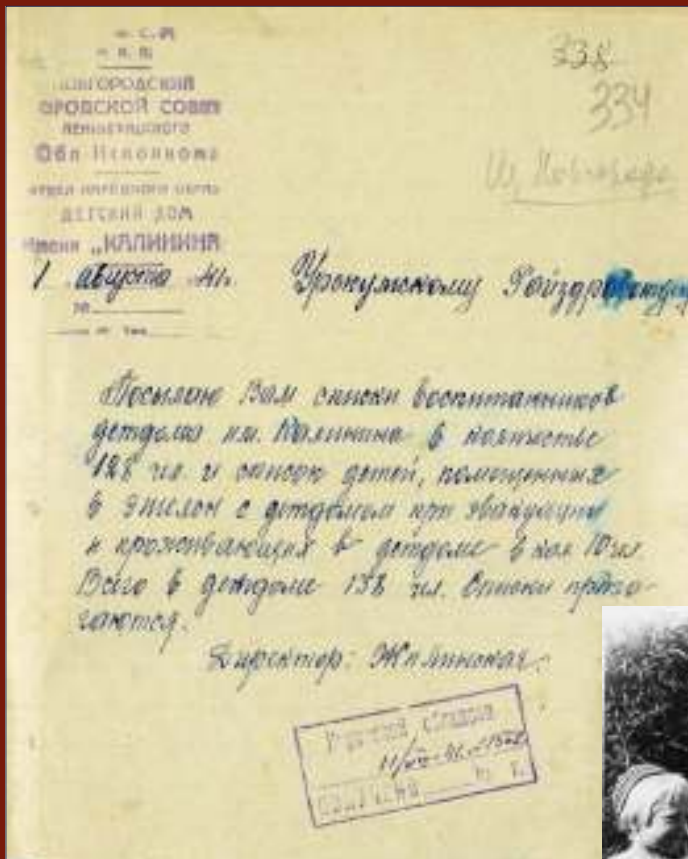 С. М
Н. П.
НОВГОРОДСКИЙ
ГОРОДСКОЙ СОВЕТ
ЛЕНИНГРАДСКОГО
Обл Исполкома
ОТДЕЛ НАРОДНОГО ОБРАЗ
ДЕТСКИЙ ДОМ
Имени „КАЛИНИНА
1 августа 41г.
№
338
334
Из Новгорода
Уржумскому Райздравотделу
Посылаю Вам списки воспитанников
детдома им. Калинина в количестве
128 чел. и список детей, помещенных
в эшелон с детдомом при эвакуации
и проживающих в детдоме в кол 10 чел
Всего в детдоме 138 чел. Списки прила-
гаются.
Директор: